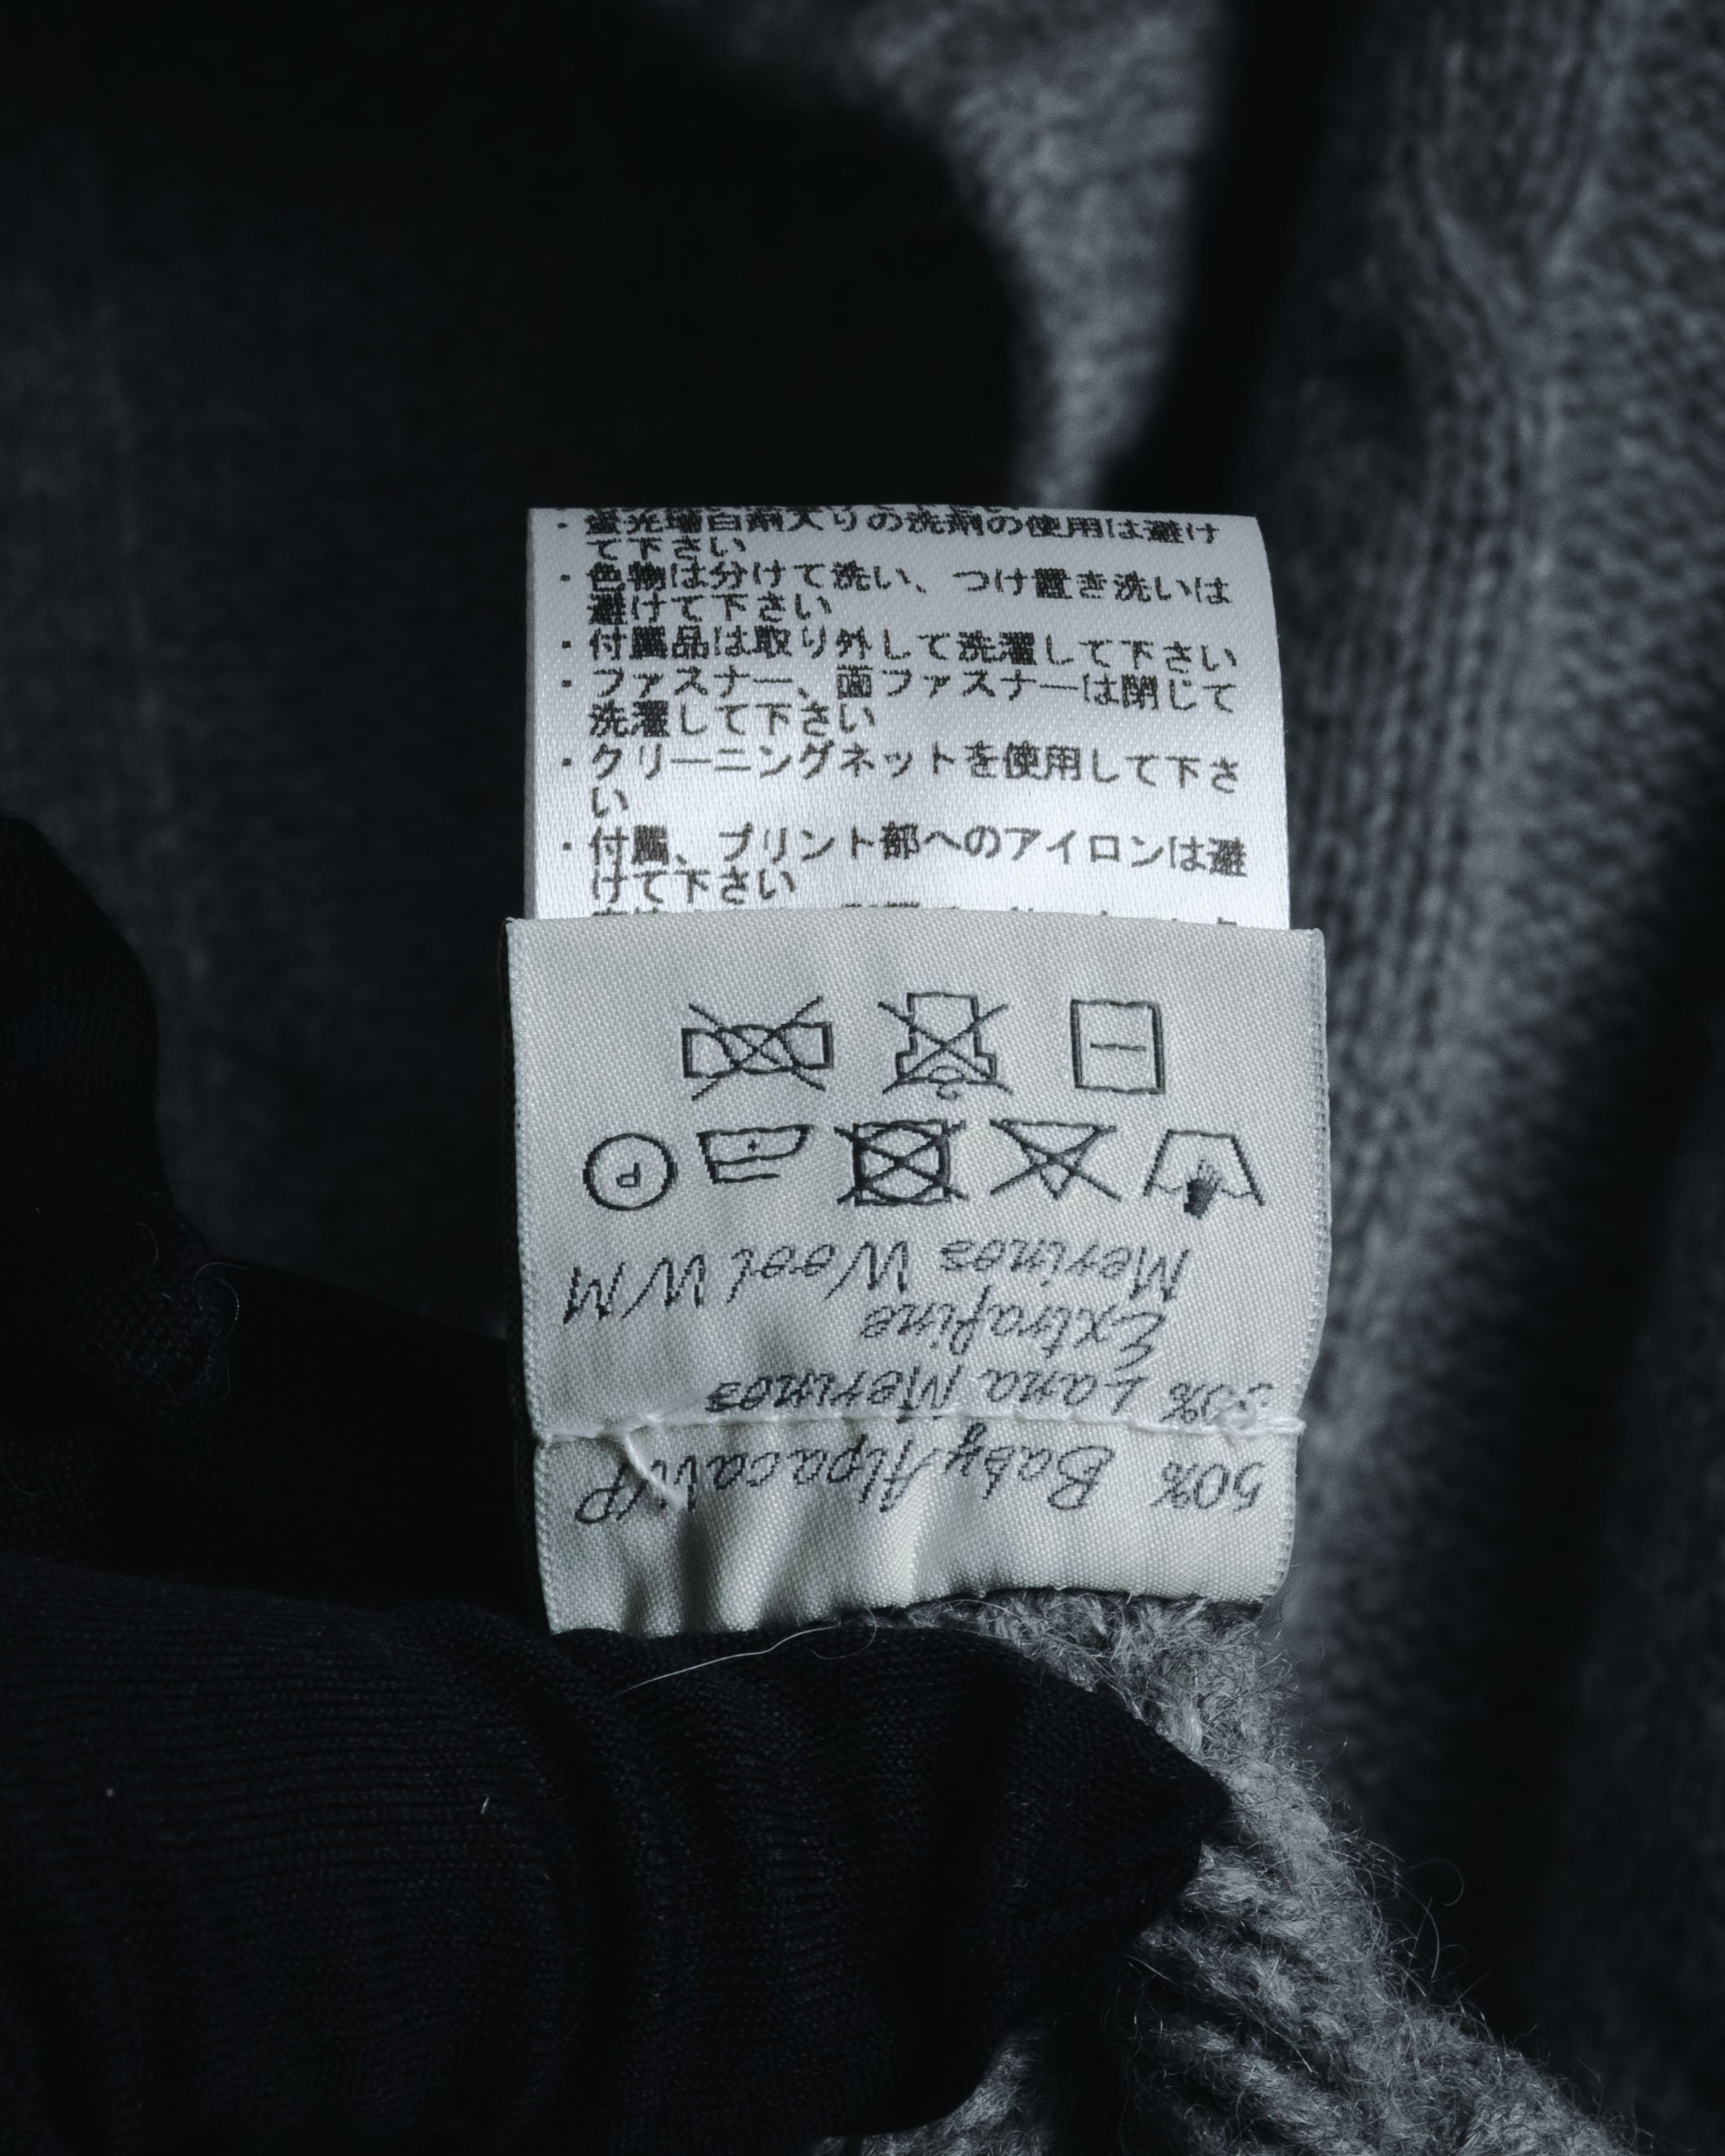 ・蛍光増白剤入りの洗剤の使用は避け
て下さい
・色物は分けて洗い、つけ置き洗いは
避けて下さい
・付属品は取り外して洗濯して下さい
・ファスナー、面ファスナーは閉じて
洗濯して下さい
・クリーニングネットを使用して下さ
い
・付属、プリント部へのアイロンは避
けて下さい
50% Baby Alpaca W/P
Lana Merinos
Extrafine
Merinos Wool W/M
P